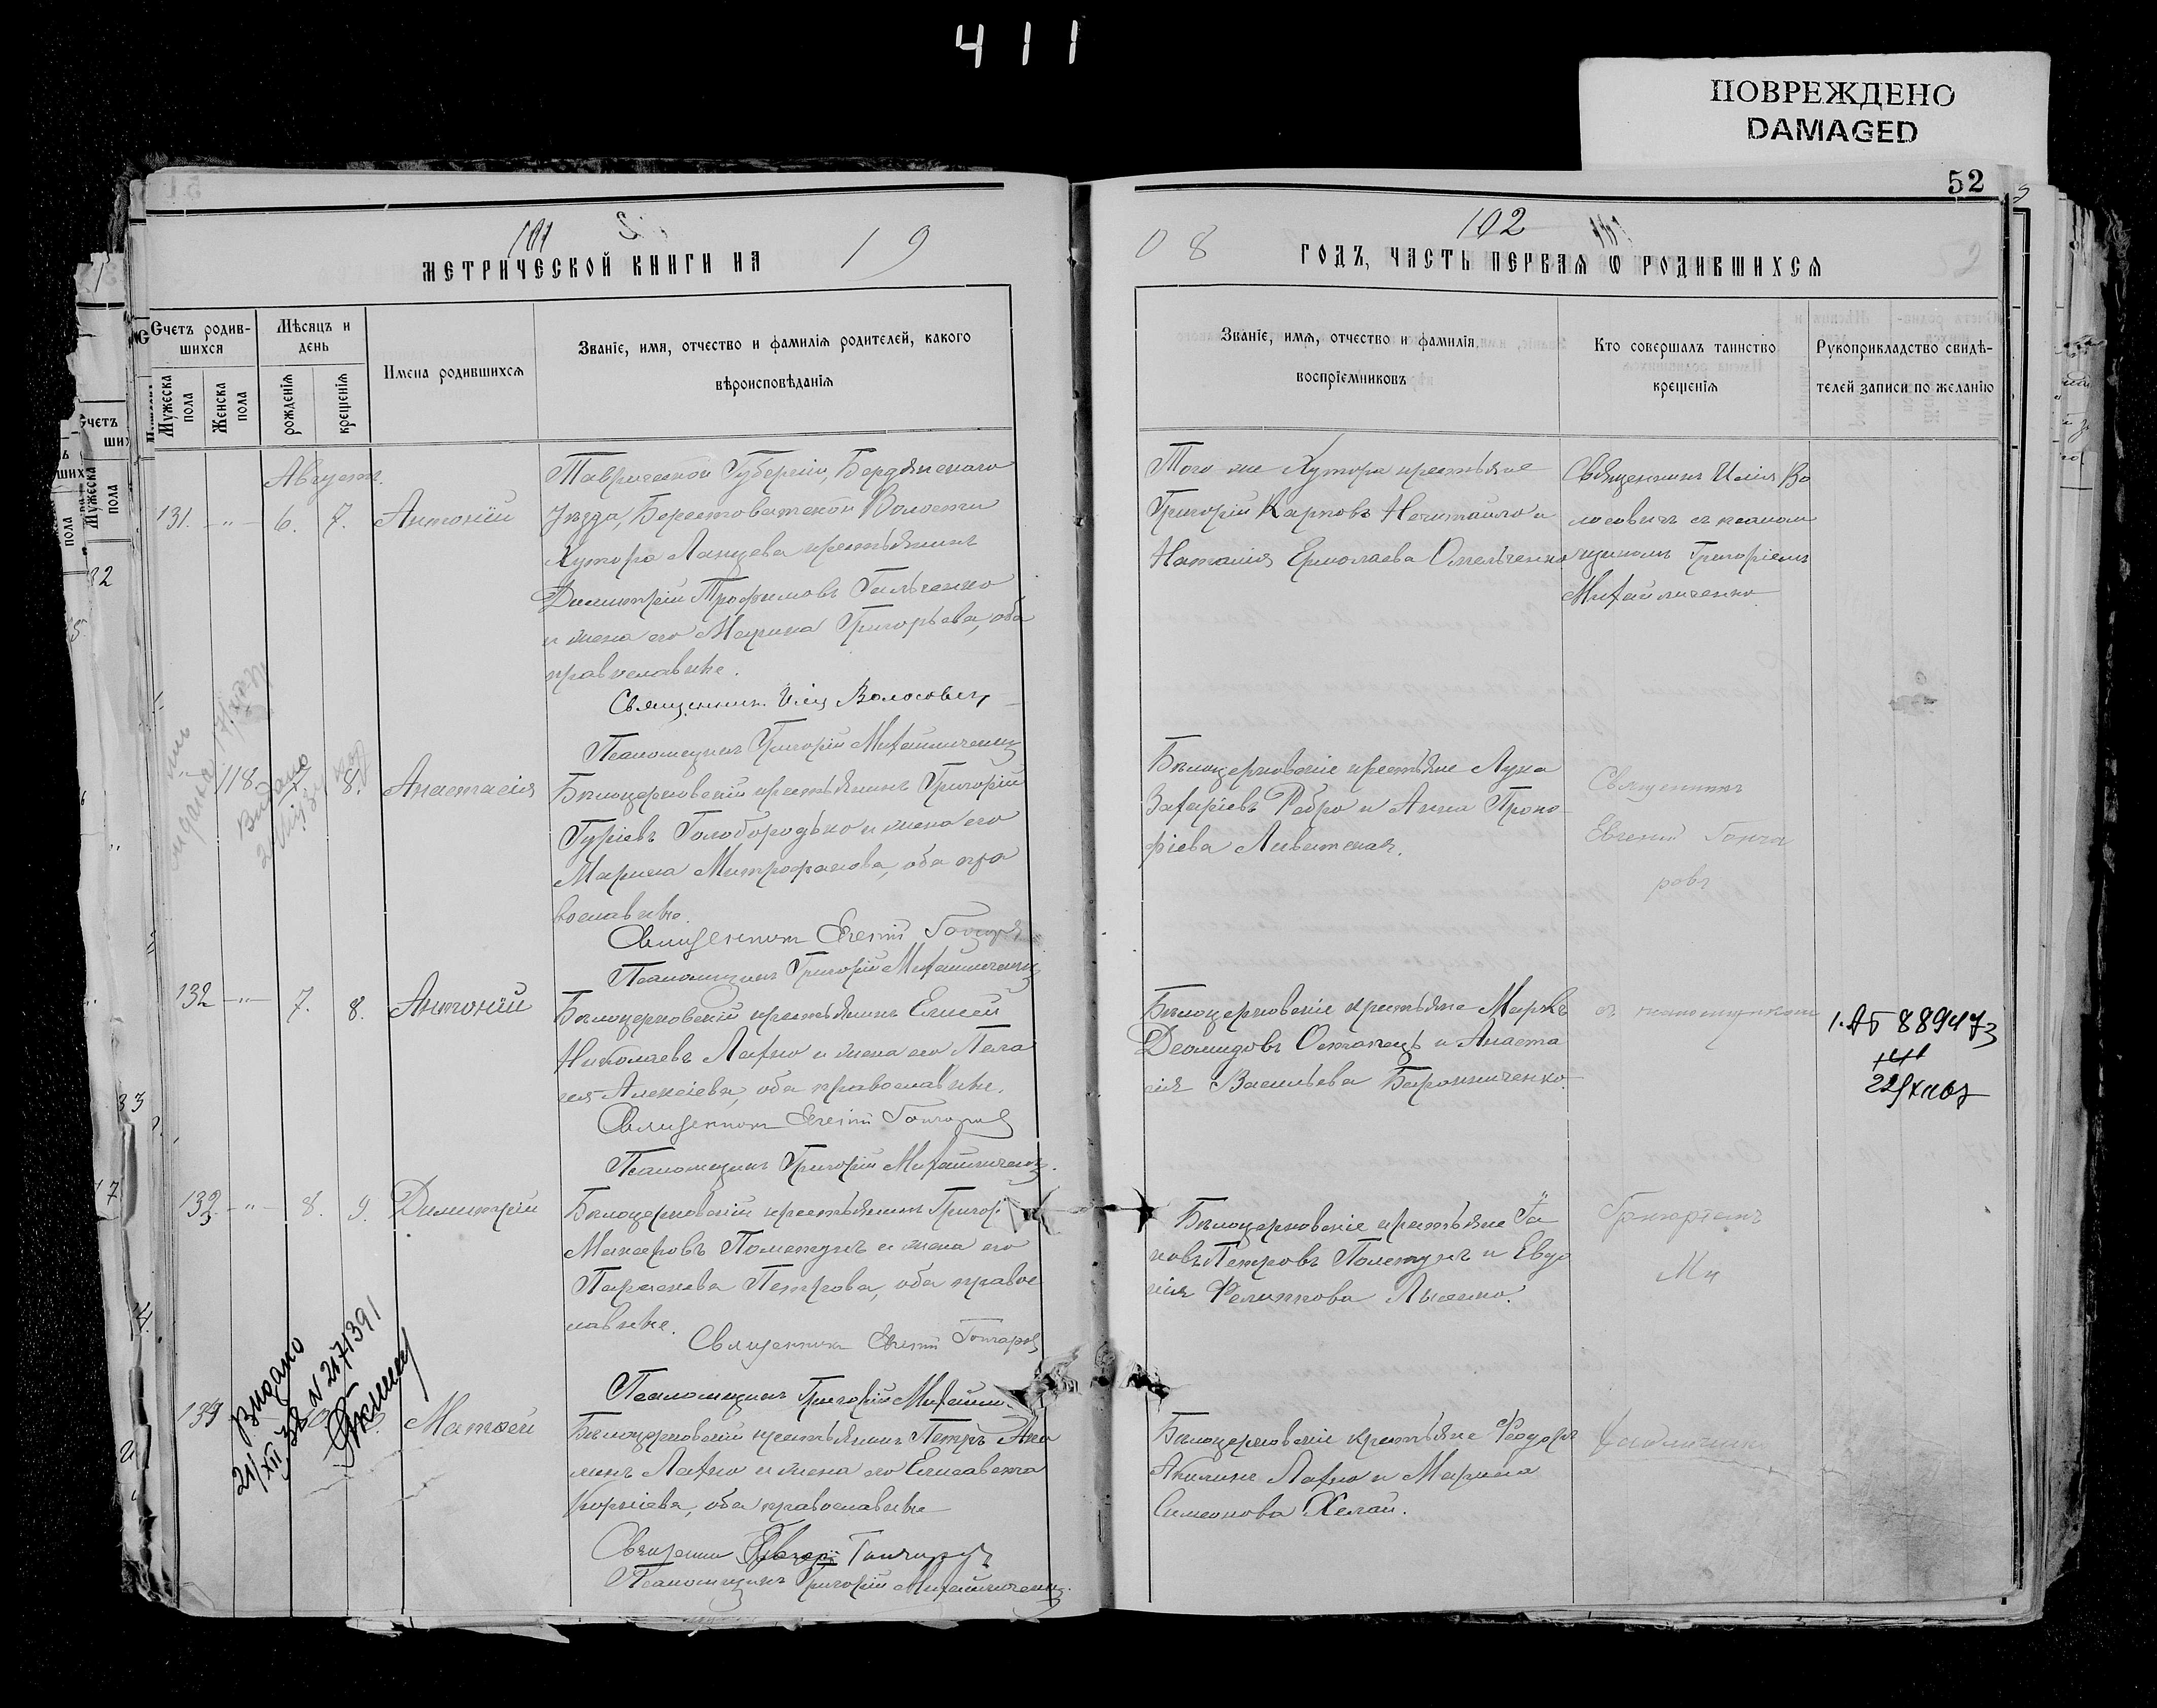 411
ПОВРЕЖДЕНО
DAMAGED
52
101
102
МЕТРИЧЕСКОЙ КНИГИ НА 19
08 ГОДЪ, ЧАСТЬ ПЕРВАЯ Ѡ РОДИВШИХСЯ
Счетъ родившихся
Мужеска пола
Женска пола
Мѣсяцъ и день
рожденія
крещенія
Имена родившихся
Званіе, имя, отчество и фамилія родителей, какого
вѣроисповѣданія
Званіе, имя, отчество и фамилія
воспріемниковъ
Кто совершалъ таинство
крещенія
Рукоприкладство свидѣ-
телей записи по желанію
Августъ.
131. - " - 6. 7. Антоній
Таврической Губерніи, Бердянскаго
Уѣзда, Берестоватской Волости
Хутора Ланцева крестьянинъ
Димитрій Трофимовъ Гильченко
и жена его Марина Григорьева, оба
православные.
Священникъ Илія Волосович
Псаломщикъ Григорій Михайличенко
Того же Хутора крестьяне
Григорій Карповъ Нечитайло и
Наталія Ермолаева Омельченко
Священникъ Илія Во
лосовичъ съ псалом
щикомъ Григоріемъ
Михайличенко
118. 7. 8. Анастасія
Видано
Бѣлоцерковскій крестьянинъ Григорій
Гуріевъ Голобородько и жена его
Марина Митрофанова, оба пра
вославные.
Священникъ Евгеній Гончаровъ
Псаломщикъ Григорій Михайличенко
Бѣлоцерковскіе крестьяне Лука
Захаріевъ Ребро и Анна Проко-
фіева Ливитская.
Священникъ
Евгеній Гонча
ровъ
132 - " - 7. 8. Антоній
Бѣлоцерковскій крестьянинъ Елисей
Николаевъ Лахно и жена его Пела
гія Алексіева, оба православные.
Священникъ Евгеній Гончаровъ
Псаломщикъ Григорій Михайличенко.
Бѣлоцерковскіе крестьяне Маркъ
Деомидовъ Остапецъ и Анаста
сія Васильева Баранниченко.
съ псаломщикомъ
1. АБ 889473
133. - " - 8. 9. Димитрій
Бѣлоцерковскій крестьянинъ Григор
Макаровъ Полетунъ и жена его
Параскева Петрова, оба правос
лавные.
Священникъ Евгеній Гончаровъ
Псаломщикъ Григорій Михайли
Бѣлоцерковскіе крестьяне Іа
ковъ Петровъ Полетунъ и Евдо
кія Филиппова Лысенко.
Григоріемъ
Ми
Видано
21/XII 32 N 2171391
Матѳей
Бѣлоцерковскій крестьянинъ Петръ Аки
линъ Лахно и жена его Елисавета
Корніева, оба православные
Священникъ Евгеній Гончаровъ
Псаломщикъ Григорій Михайличенко.
Бѣлоцерковскіе крестьяне Ѳеодоръ
Акилинъ Лахно и Марина
Симеонова Хелай.